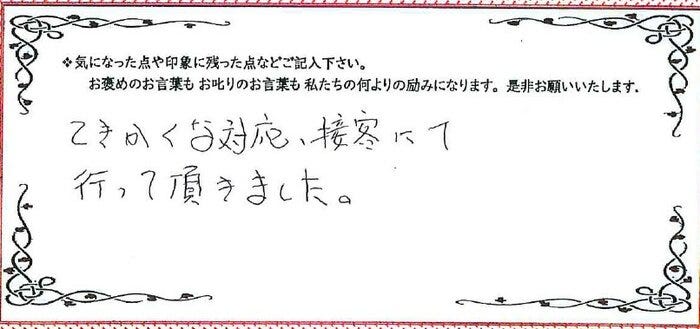 ❖気になった点や印象に残った点などご記入下さい。
お褒めのお言葉も お叱りのお言葉も 私たちの何よりの励みになります。是非お願いいたします.
てきかくな対応、接客にて
行って頂きました。